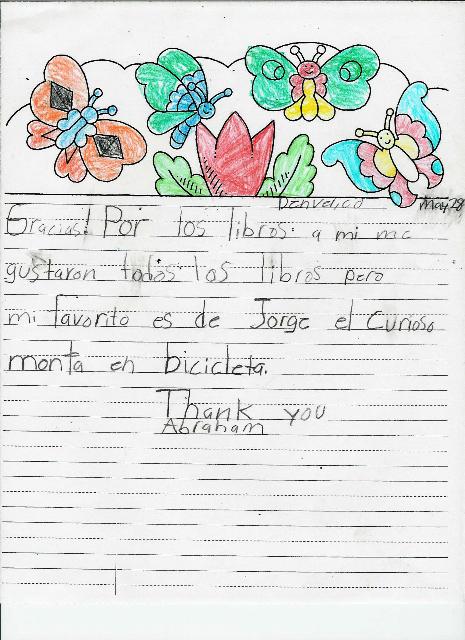 May 28
Gracias! Por los libros. a mi me
gustaron todos los libros pero
mi favorito es de Jorge el Curioso
monta en bicicleta.
Thank you
Abraham